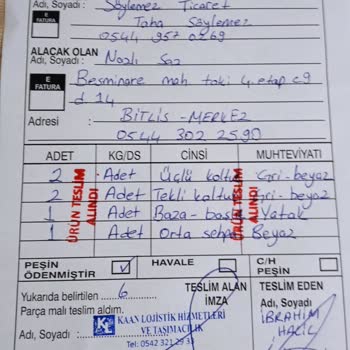 Adı, Soyadı : Söylemez Ticaret
Taha Söylemez
0544 957 0269
E FATURA
ALACAK OLAN
Adı, Soyadı : Nazlı Saz
E FATURA
Besminare mah. toki 4. etap c9
d.14
Adresi : BİTLİS-MERKEZ
0544 302 2590
ADET KG/DS CİNSİ MUHTEVİYATI
2 Adet Üçlü koltuk Gri-beyaz
2 Adet Tekli koltuk Gri-beyaz
1 Adet Baza-başlık Yatak
1 Adet Orta sehpa Beyaz
ÜRÜN TESLİM ALINDI
ÜRÜN TESLİM ALINDI
PEŞİN ÖDENMİŞTİR HAVALE C/H PEŞİN
Yukarıda belirtilen 6
Parça malı teslim aldım.
TESLİM ALAN
İMZA
TESLİM EDEN
Adı, Soyadı
İBRAHİM
HALİL
Adı, Soyadı :
KAAN LOJİSTİK HİZMETLERİ
VE TAŞIMACILIK
Tel: 0542 321 29 33